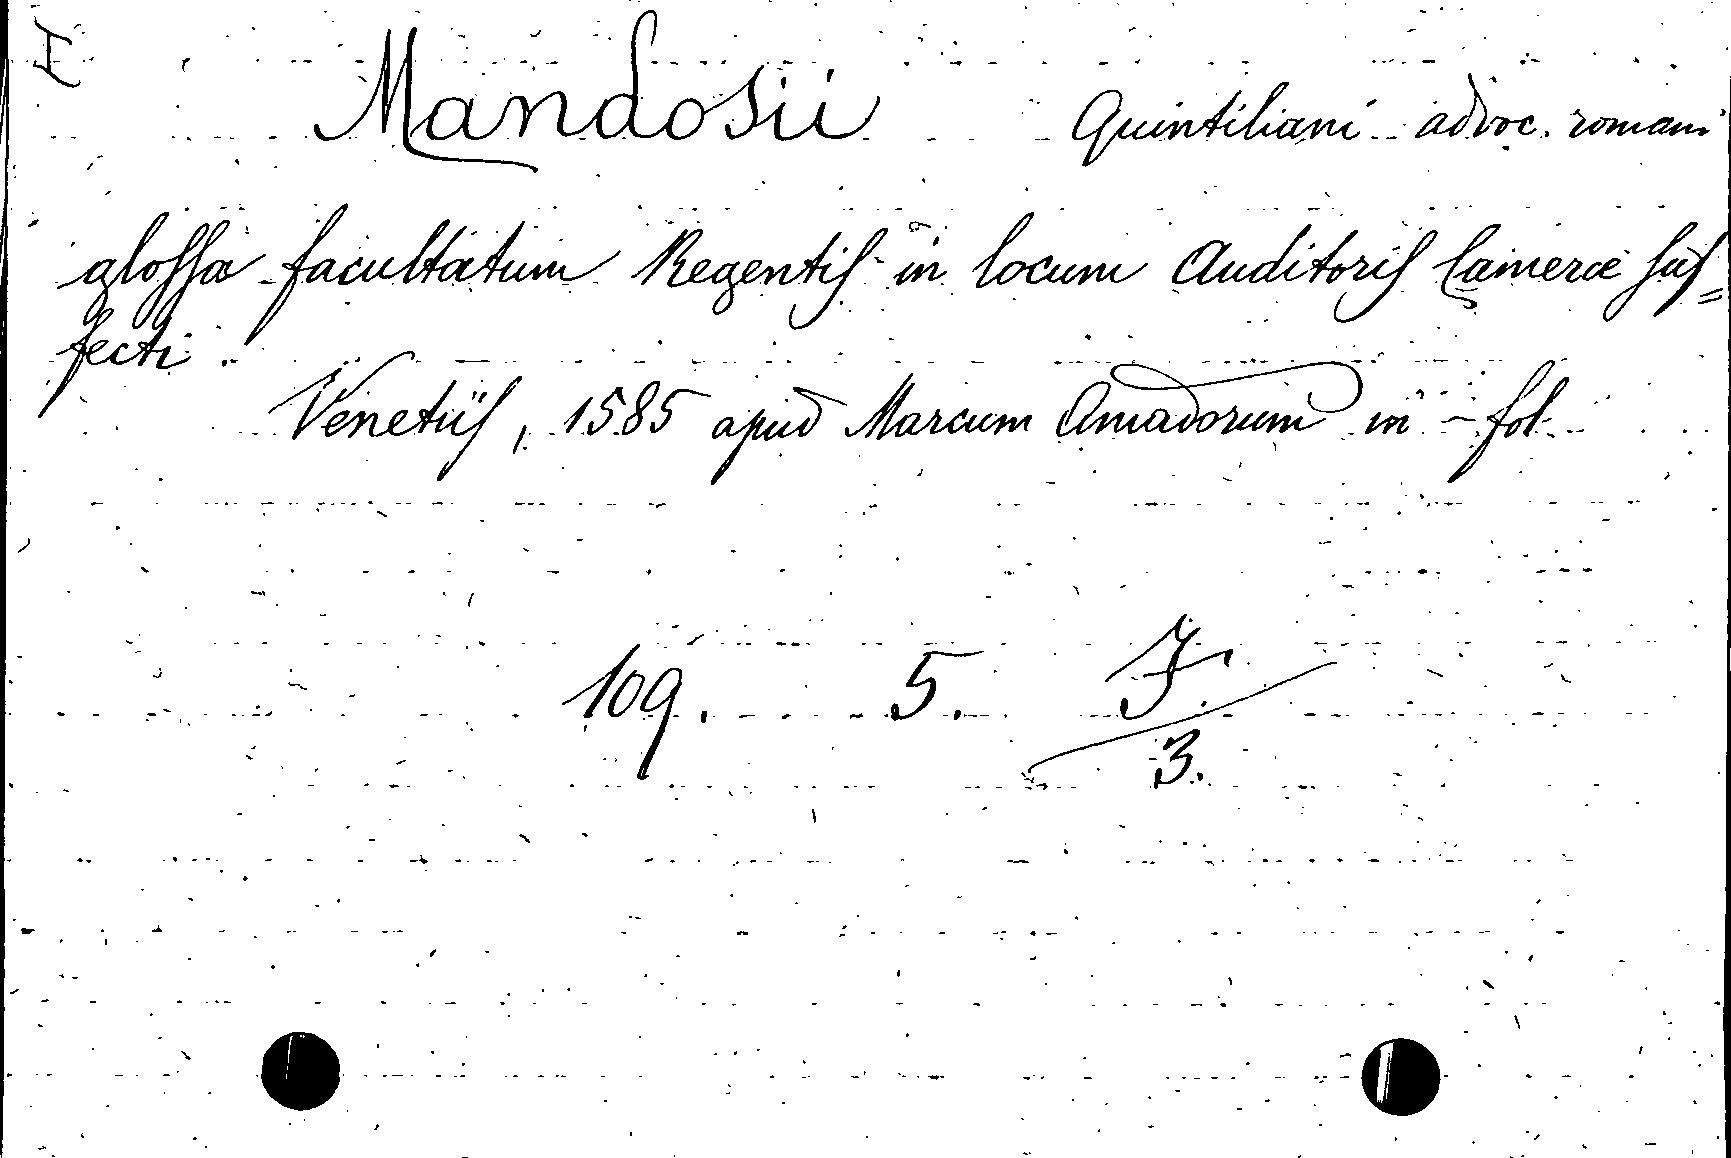 I
Mandosii Quintiliani advoc. romani
glossæ facultatum Regentis in locum Auditoris Cameræ suf=
fecti.
Venetiis, 1585 apud Marcum Amadorum in-fol
109. 5. J.
3.